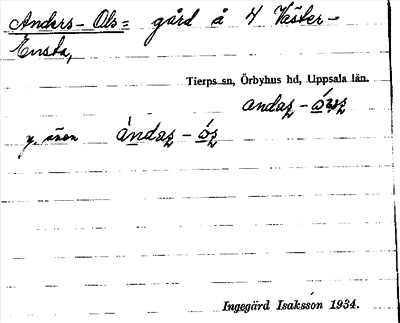 Anders-Ols= gård å 4 Väster-
Ensta,
Tierps sn, Örbyhus hd, Uppsala län.
andaz -
y. även ándaz - óz
Ingegärd Isaksson 1934.